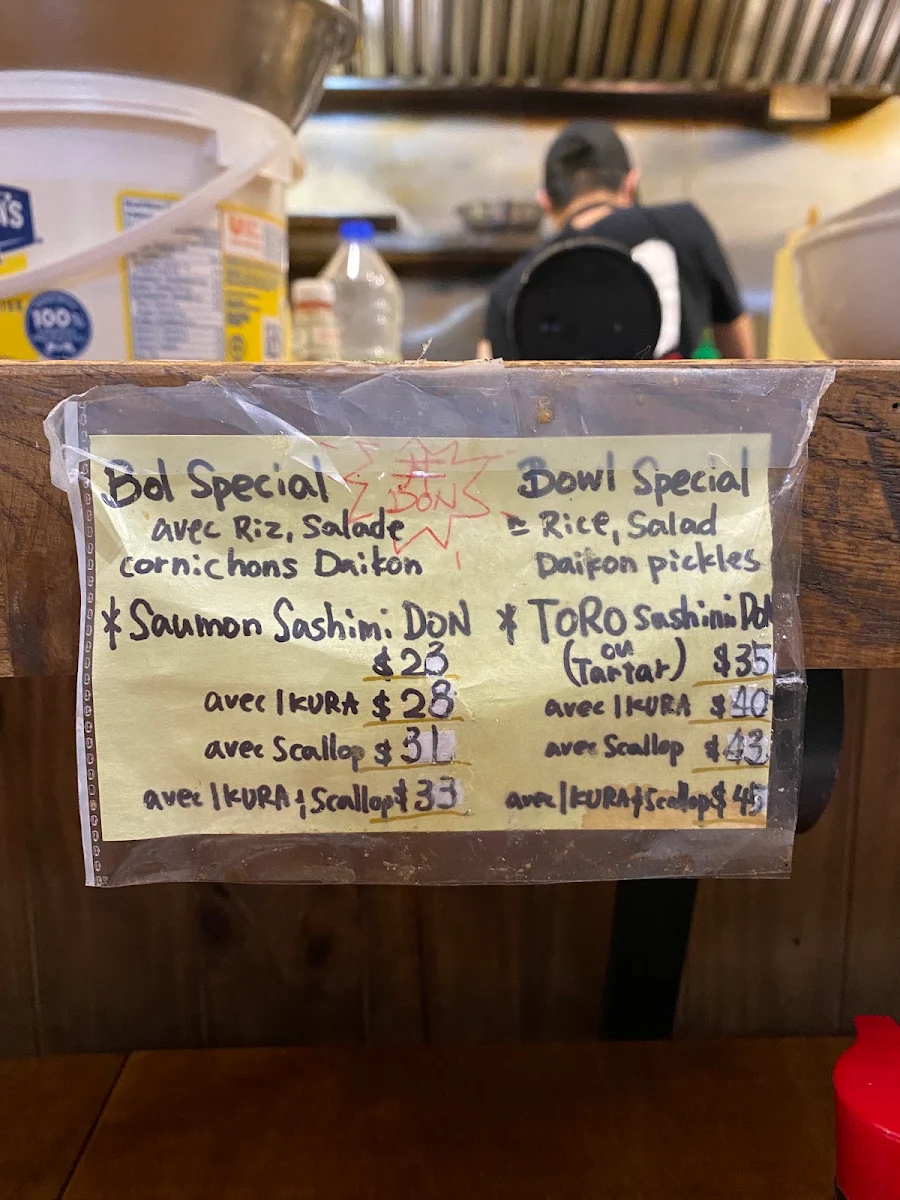 N'S
100%
Bol Special
avec Riz, Salade
cornichons Daikon
丼
DON
Bowl Special
Rice, Salad
Daikon pickles
* Saumon Sashimi DON
$23
avec IKURA $28
avec Scallop $31
avec IKURA & Scallop $33
* TORO Sashimi DON
(ou Tartar) $35
avec IKURA $40
avec Scallop $43
avec IKURA & Scallop $45